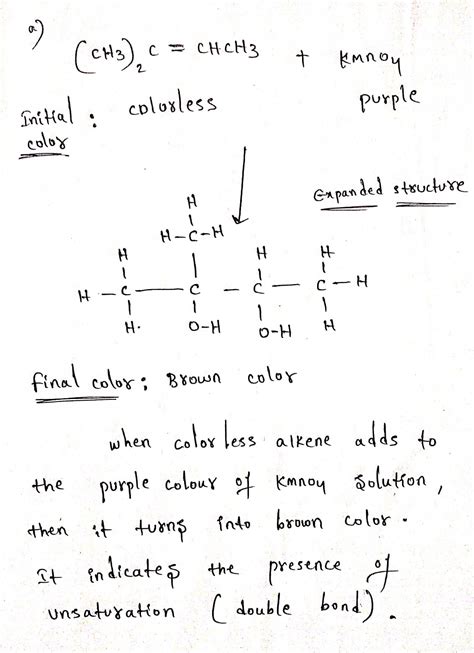 a)
(CH3)2 C = CHCH3 + kmno4
Initial : colorless purple
color
Expanded structure
H
H-C-H
H H H
H - C - C - C - C - H
H. O-H O-H H
final color: Brown color
when colorless alkene adds to
the purple colour of kmno4 solution,
then it turns into brown color.
It indicates the presence of
unsaturation (double bond).